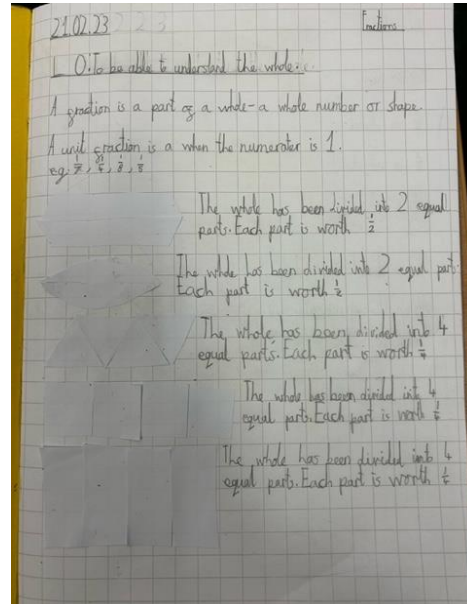 21.02.23
Fractions
L O:To be able to understand the whole.
A fraction is a part of a whole - a whole number or shape.
A unit fraction is a when the numerater is 1.
eg.
The whole has been divided into 2 equal
parts. Each part is worth 1/2
The whole has been divided into 2 equal part.
Each part is worth 1/2
The whole has been divided into 4
equal parts. Each part is worth 1/4
The whole has been divided into 4
equal parts. Each part is worth 1/4
The whole has been divided into 4
equal parts. Each part is worth 1/4